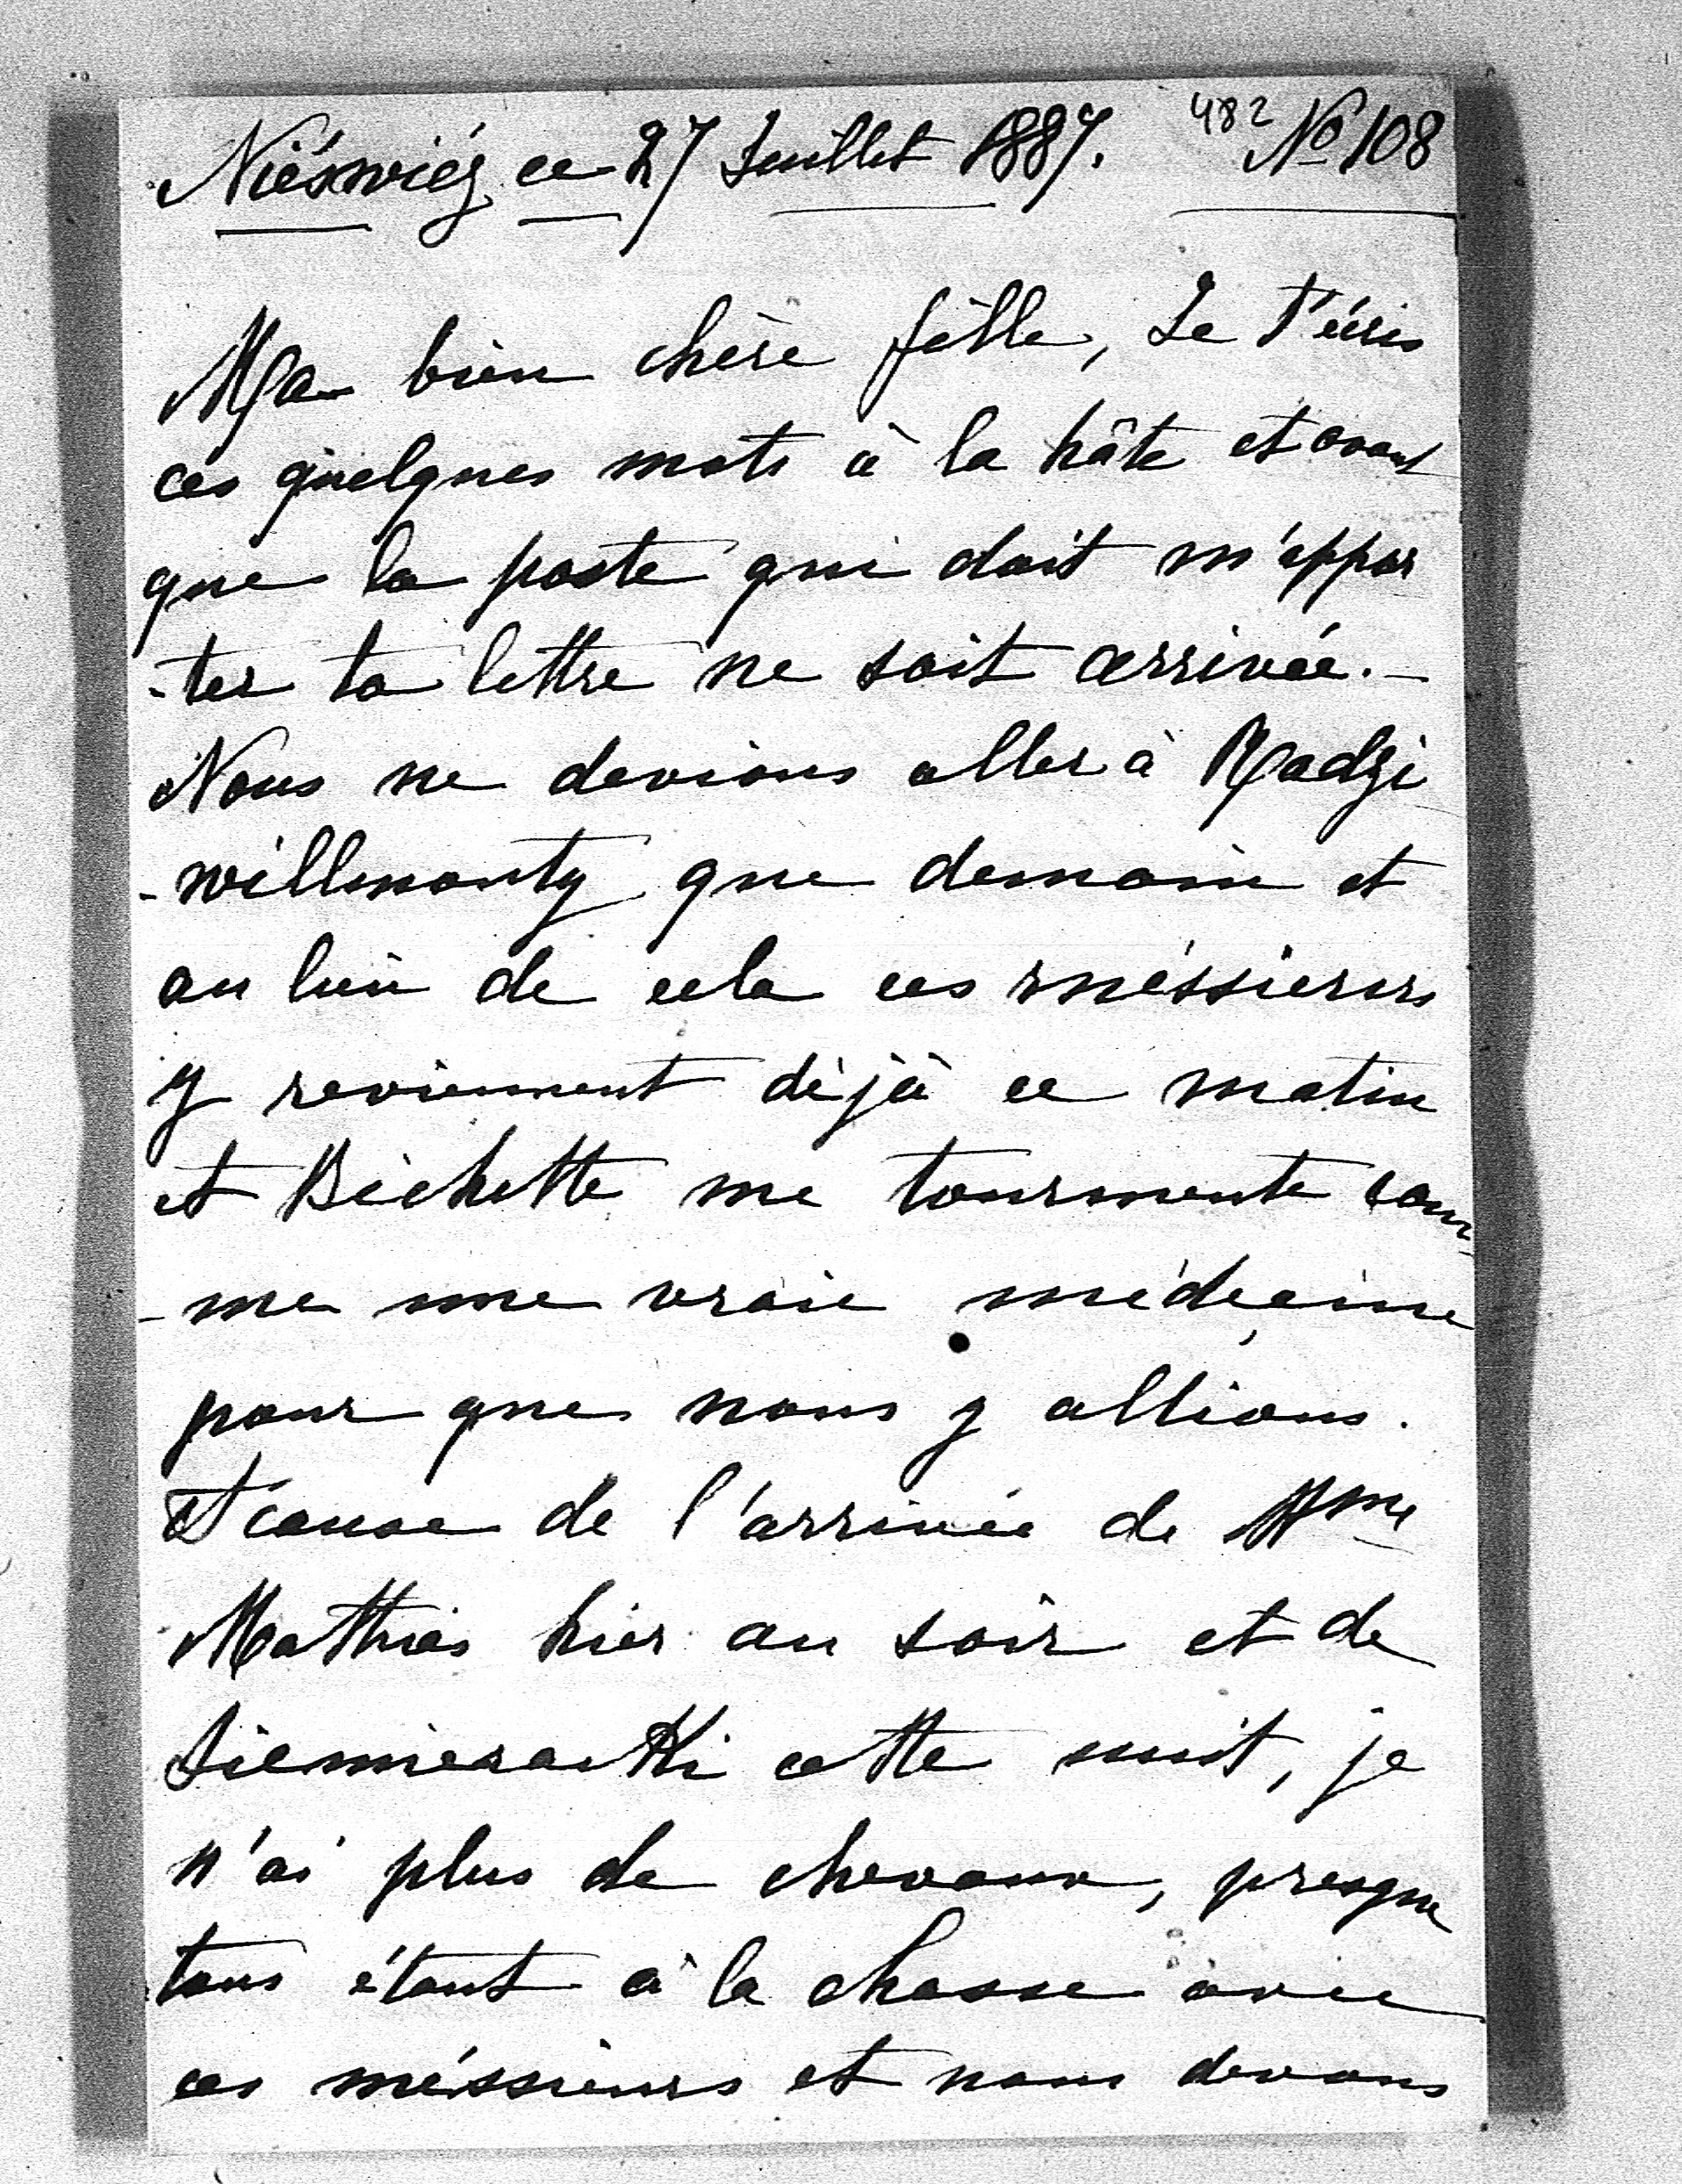 482
Niéswiéz ce 27 Juillet 1887. No 108
Ma bien chère fille, Je t'écris
ces quelques mots à la hâte et avant
que la poste qui doit m'appor
-ter ta lettre ne soit arrivée.-
Nous ne devions aller à Radzi
-willmonty que demain et
au lieu de cela ces méssieurs
y reviennent déjà ce matin
et Bichette me tourmente com-
-me une vraie médecine
pour que nous y allions.
A cause de l'arrivée de Mme
Mathias hier au soir et de
cette nuit, je
n'ai plus de chevaux, presque
tous étant à la chasse avec
ces méssieurs et nous devons